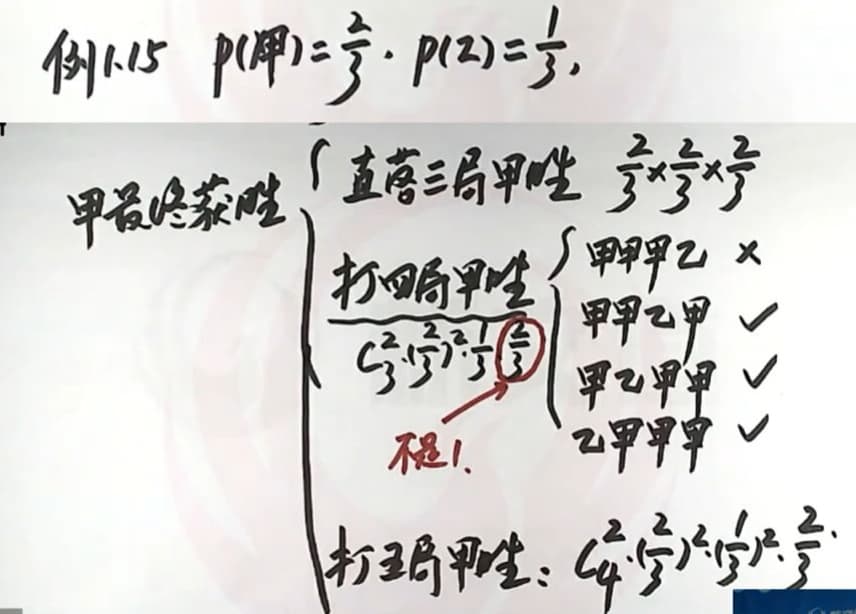 例1.15 P(甲)=2/3. P(乙)=1/3,
甲最终获胜
直落三局甲胜 2/3×2/3×2/3
打四局甲胜
C₃²·(2/3)²·1/3·2/3
不是1.
甲甲甲乙 ×
甲甲乙甲 ✓
甲乙甲甲 ✓
乙甲甲甲 ✓
打五局甲胜: C₄²·(2/3)²·(1/3)²·2/3.